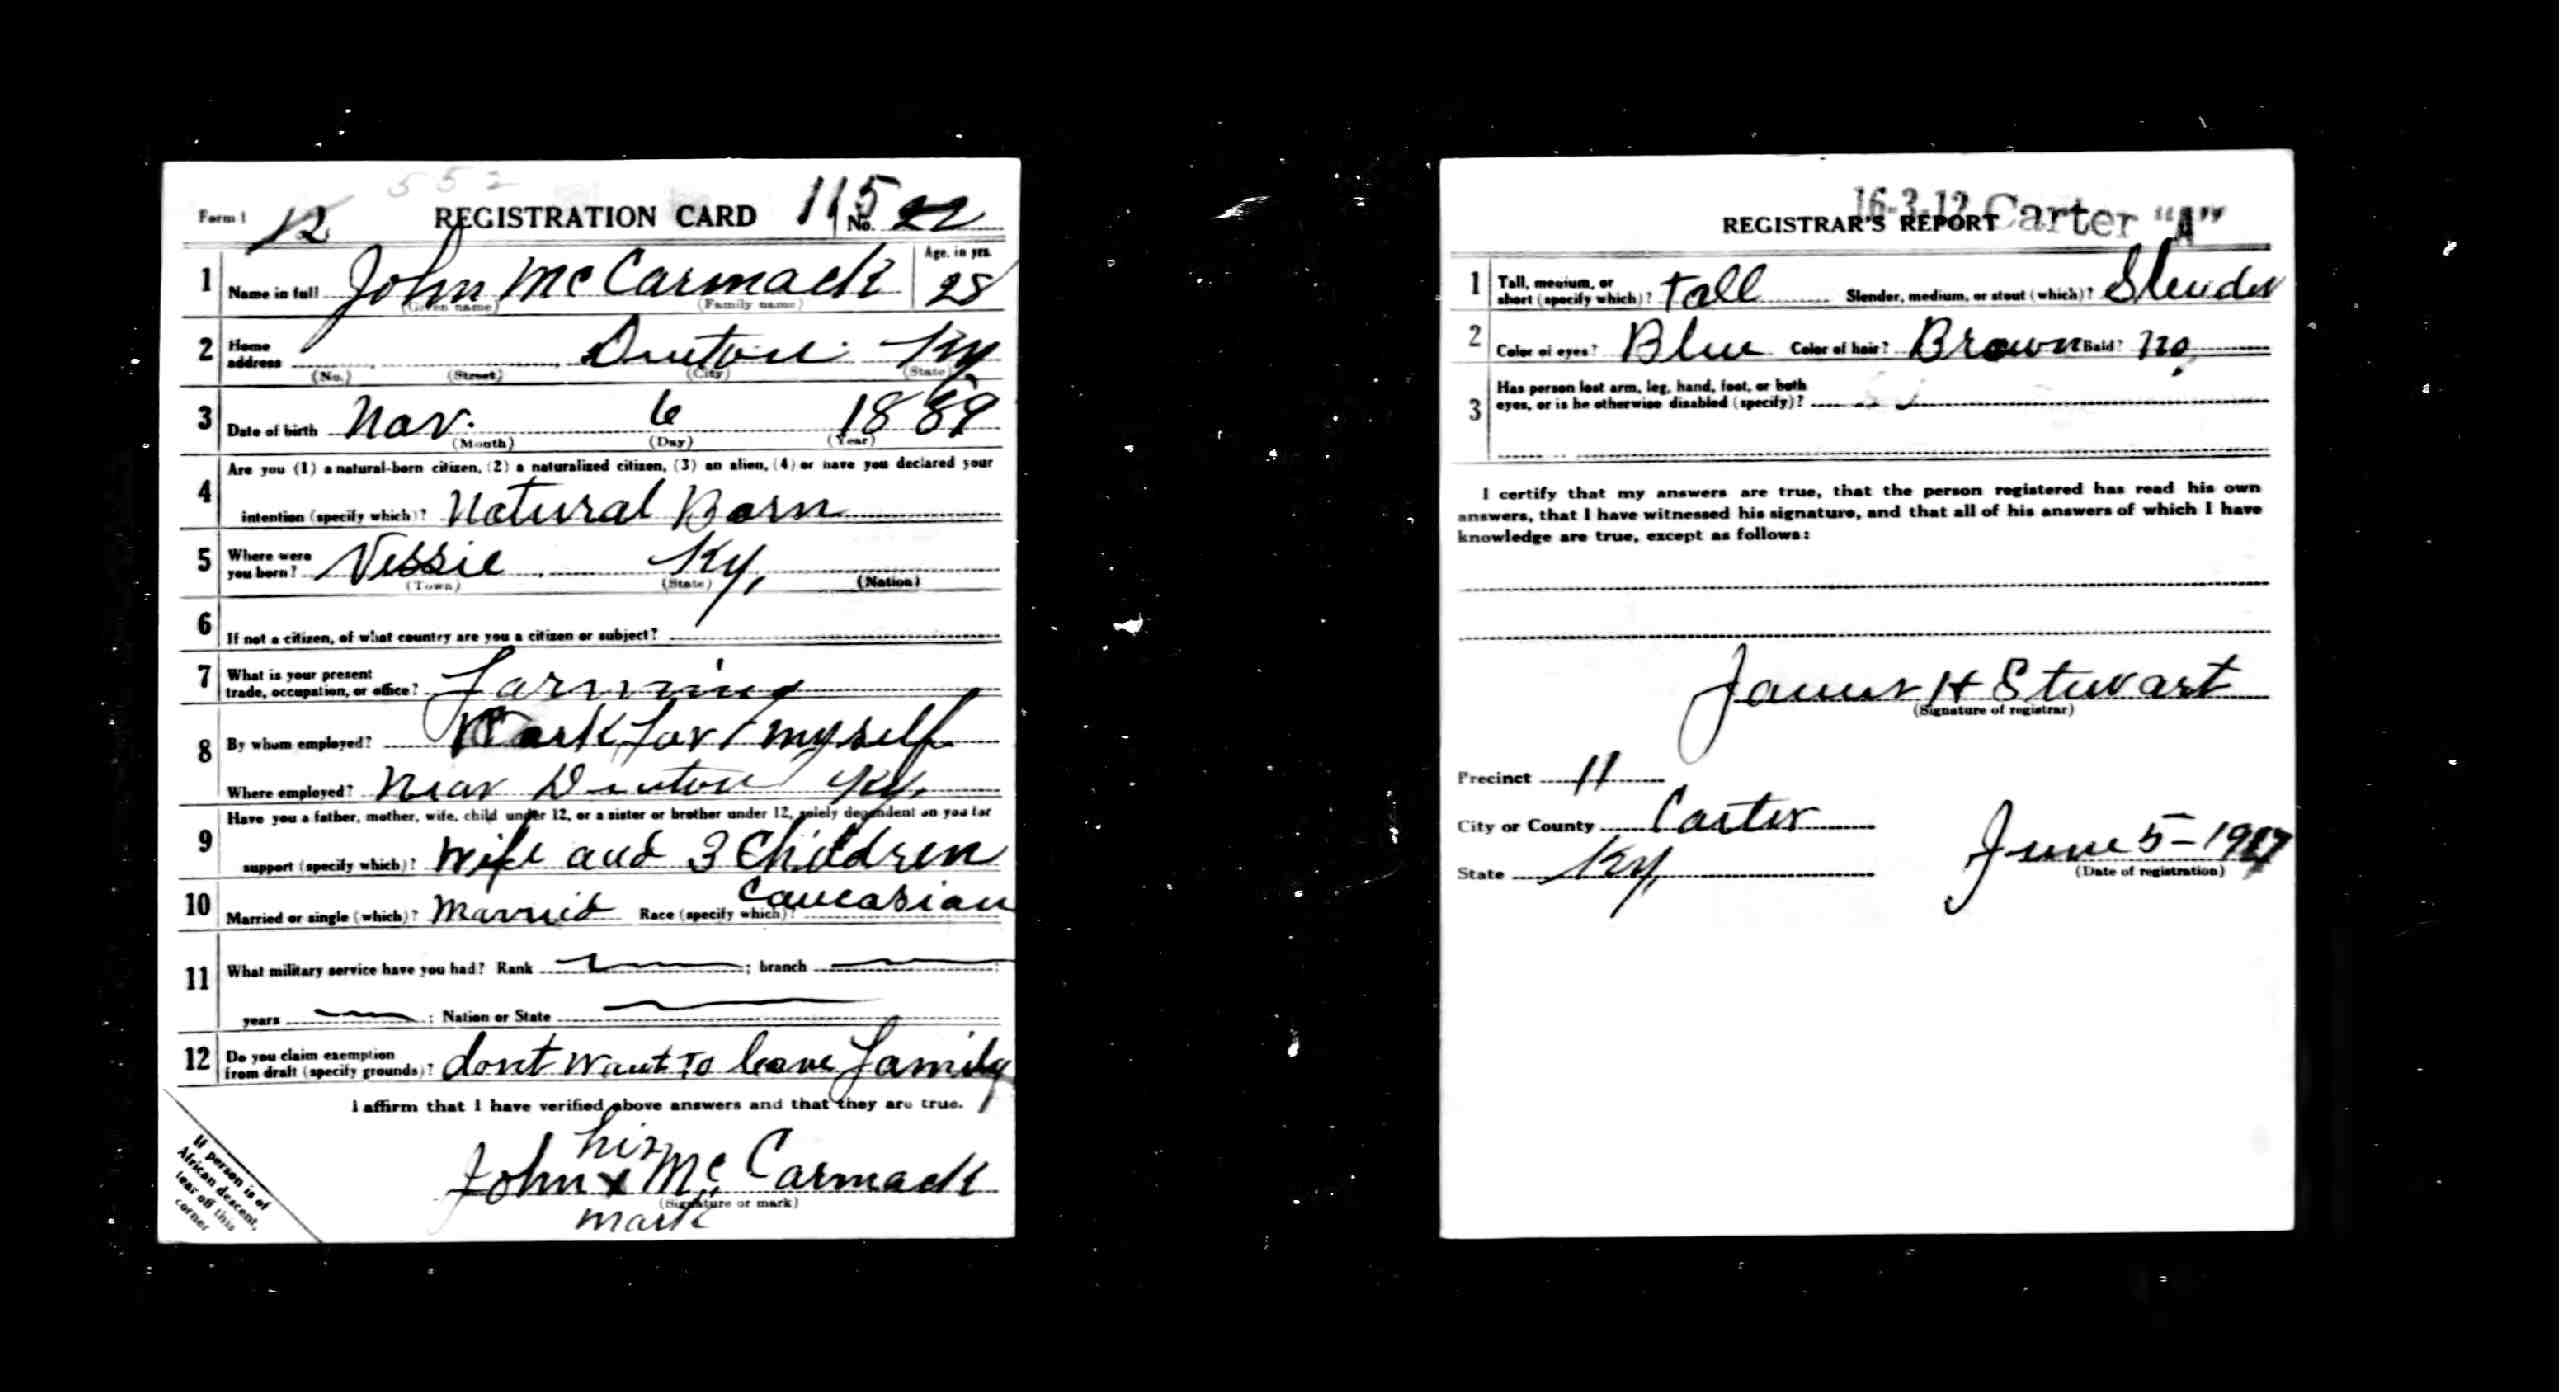 552
Form 1 12 REGISTRATION CARD 115 No. 22
1 Name in full John McCarmack Age, in yrs. 28
(Given name) (Family name)
2 Home address Denton Ky
(No.) (Street) (City) (State)
3 Date of birth Nov. 6 1889
(Month) (Day) (Year)
Are you (1) a natural-born citizen, (2) a naturalized citizen, (3) an alien, (4) or have you declared your
4 intention (specify which)? Natural Born
5 Where were you born? Vessie Ky,
(Town) (State) (Nation)
6 If not a citizen, of what country are you a citizen or subject?
7 What is your present trade, occupation, or office? Farming
8 By whom employed? Work for myself
Where employed? Near Denton Ky.
Have you a father, mother, wife, child under 12, or a sister or brother under 12, solely dependent on you for
9 support (specify which)? Wife and 3 Children
10 Married or single (which)? Married Race (specify which)? Caucasian
11 What military service have you had? Rank ; branch ;
years ; Nation or State
12 Do you claim exemption from draft (specify grounds)? dont want to leave family
I affirm that I have verified above answers and that they are true.
his
John x McCarmack
(Signature or mark)
mark
If person is of
African descent,
tear off this
corner
16-3-12 Carter "A"
REGISTRAR'S REPORT
1 Tall, medium, or short (specify which)? Tall Slender, medium, or stout (which)? Slender
2 Color of eyes? Blue Color of hair? Brown Bald? no,
3 Has person lost arm, leg, hand, foot, or both
eyes, or is he otherwise disabled (specify)?
I certify that my answers are true, that the person registered has read his own
answers, that I have witnessed his signature, and that all of his answers of which I have
knowledge are true, except as follows:
James H Stewart
(Signature of registrar)
Precinct 11
City or County Carter
State Ky,
June 5-1917
(Date of registration)